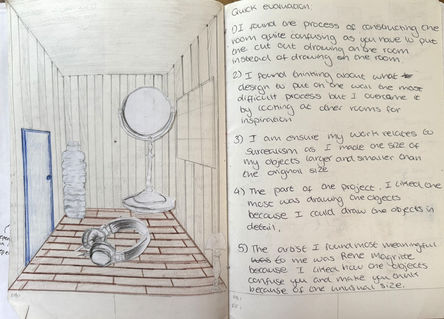 Quick evaluation:
1) I found the process of constructing the
room quite confusing as you have to put
the cut out drawing on the room
instead of drawing on the room.
2) I found thinking about what
design to put on the wall the most
difficult process but I overcame it
by looking at other rooms for
inspiration
3) I am ensure my work relates to
surrealism as I made the size of
my objects larger and smaller than
the original size
4) The part of the project, I liked the
most was drawing the objects
because I could draw the objects in
detail.
5) The artist I found most meaningful
to me was Rene Magritte
because I liked how the objects
confuse you and make you think
because of the unusual size.